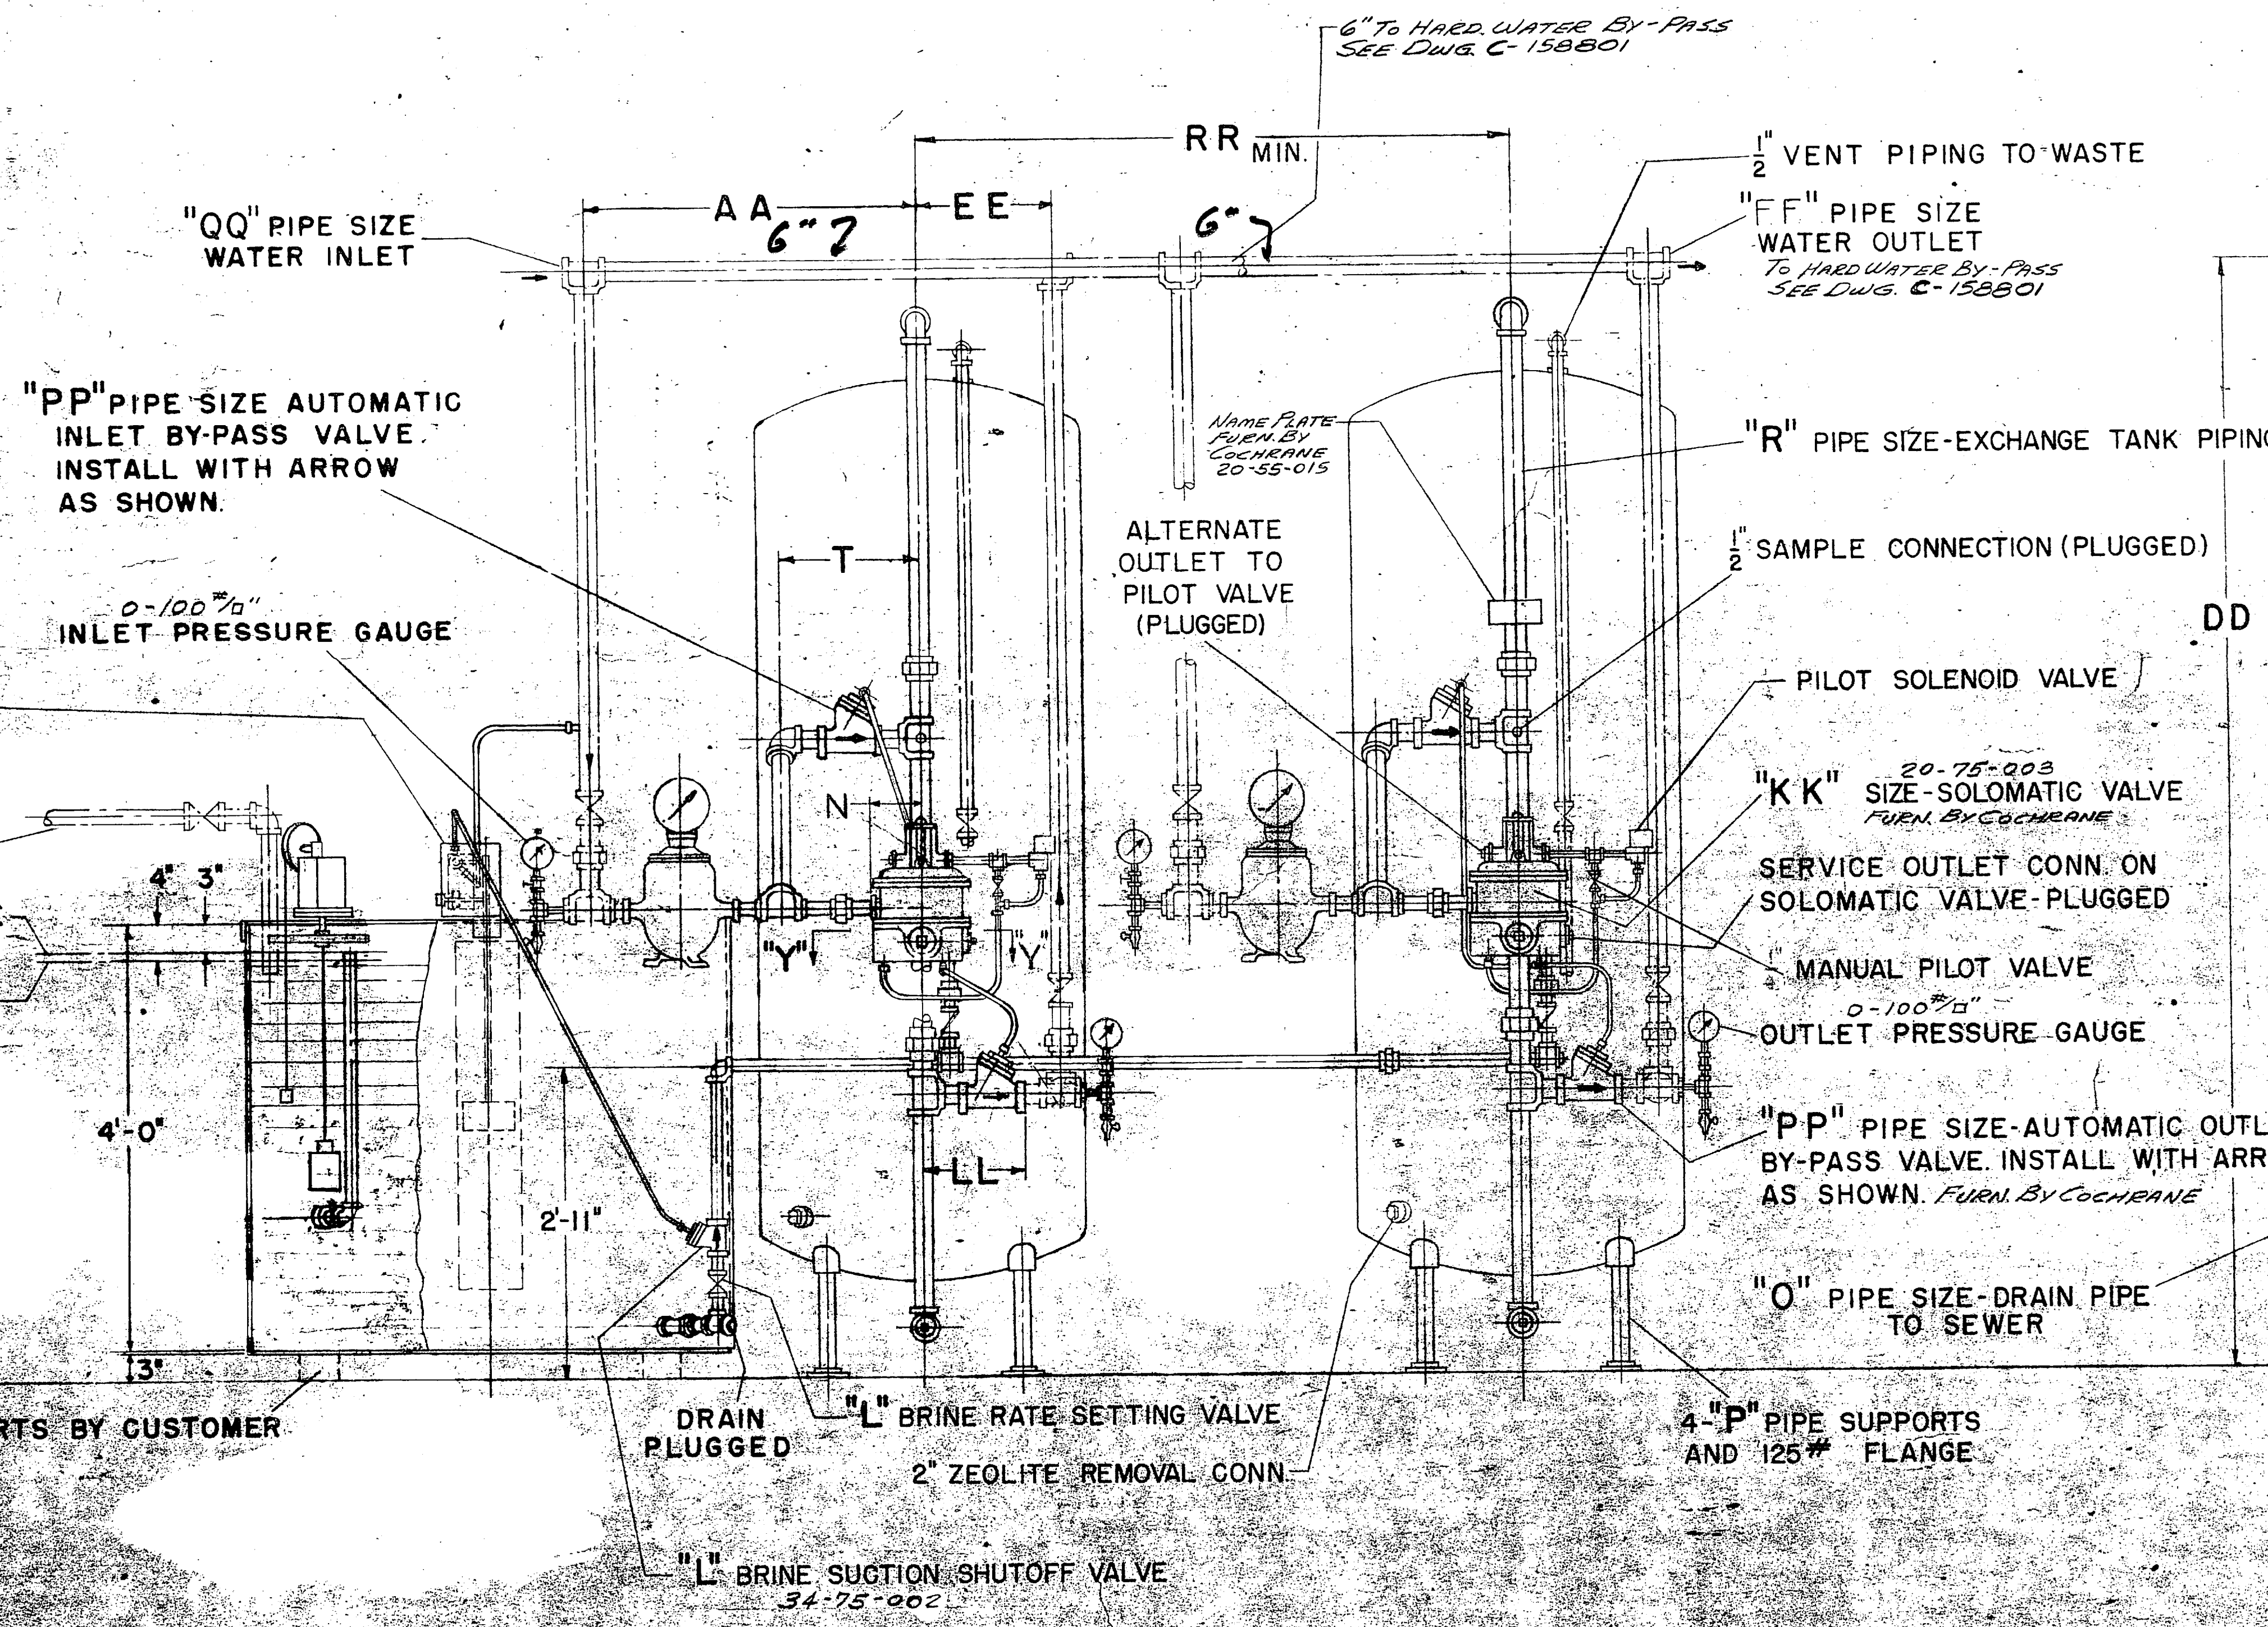 6" TO HARD WATER BY-PASS
SEE DWG. C-158801
RR MIN.
1/2" VENT PIPING TO WASTE
AA
EE
6"
6"
"QQ" PIPE SIZE
WATER INLET
"FF" PIPE SIZE
WATER OUTLET
TO HARD WATER BY-PASS
SEE DWG. C-158801
"PP" PIPE SIZE AUTOMATIC
INLET BY-PASS VALVE.
INSTALL WITH ARROW
AS SHOWN.
NAME PLATE
FURN. BY
COCHRANE
20-55-015
"R" PIPE SIZE-EXCHANGE TANK PIPING
ALTERNATE
OUTLET TO
PILOT VALVE
(PLUGGED)
T
1/2" SAMPLE CONNECTION (PLUGGED)
0-100 #/□"
INLET PRESSURE GAUGE
DD
PILOT SOLENOID VALVE
N
20-75-003
"KK" SIZE-SOLOMATIC VALVE
FURN. BY COCHRANE
4"
3"
SERVICE OUTLET CONN. ON
SOLOMATIC VALVE-PLUGGED
"Y"
"Y"
MANUAL PILOT VALVE
0-100 #/□"
OUTLET PRESSURE GAUGE
4'-0"
LL
2'-11"
"PP" PIPE SIZE-AUTOMATIC OUTL
BY-PASS VALVE. INSTALL WITH ARR
AS SHOWN. FURN. BY COCHRANE
"O" PIPE SIZE-DRAIN PIPE
TO SEWER
3"
RTS BY CUSTOMER
DRAIN
PLUGGED
"L" BRINE RATE SETTING VALVE
2" ZEOLITE REMOVAL CONN.
4-"P" PIPE SUPPORTS
AND 125# FLANGE
"L" BRINE SUCTION SHUTOFF VALVE
34-75-002